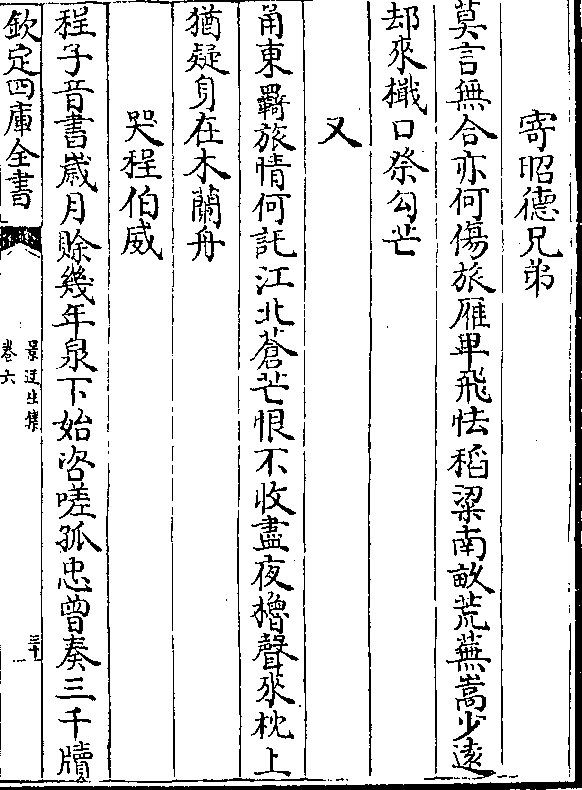 寄昭德兄弟
莫言無合亦何傷旅雁卑飛怯稻粱南畝荒蕪嵩少遠
却來檝口祭勾芒
又
甬東羇旅情何託江北蒼茫恨不收盡夜櫓聲來枕上
猶疑身在木蘭舟
哭程伯威
程子音書歲月賒幾年泉下始咨嗟孤忠曾奏三千牘
欽定四庫全書
景迂生集
卷六
三十